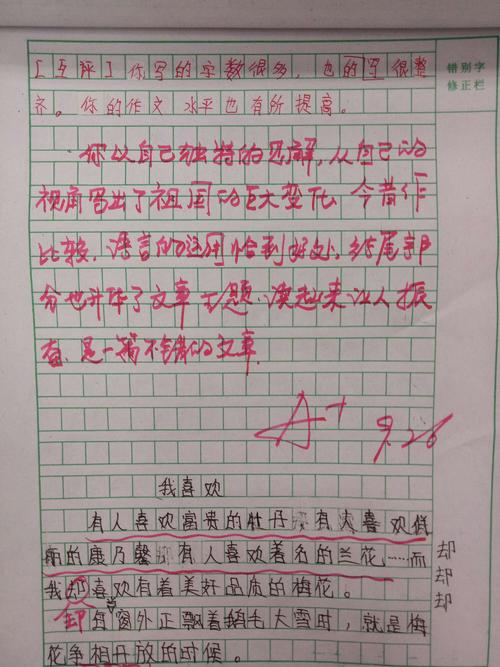 [互评]你写的字数很多，也的写很整
齐。你的作文水平也有所提高。
错别字
修正栏
你以自己独特的见解，从自己的
视角写出了祖国的巨大变化，今昔作
比较，语言的运用恰到好处，结尾部
分也升华了文章主题，读起来让人振
奋，是一篇不错的文章。
A+ 9.26
我喜欢
有人喜欢富贵的牡丹，有人喜欢
丽的康乃馨，有人喜欢著名的兰花，……而
我却喜欢有着美好品质的梅花。
却
却
却
却
每窗外正飘着鹅毛大雪时，就是梅
花争相开放的时候。